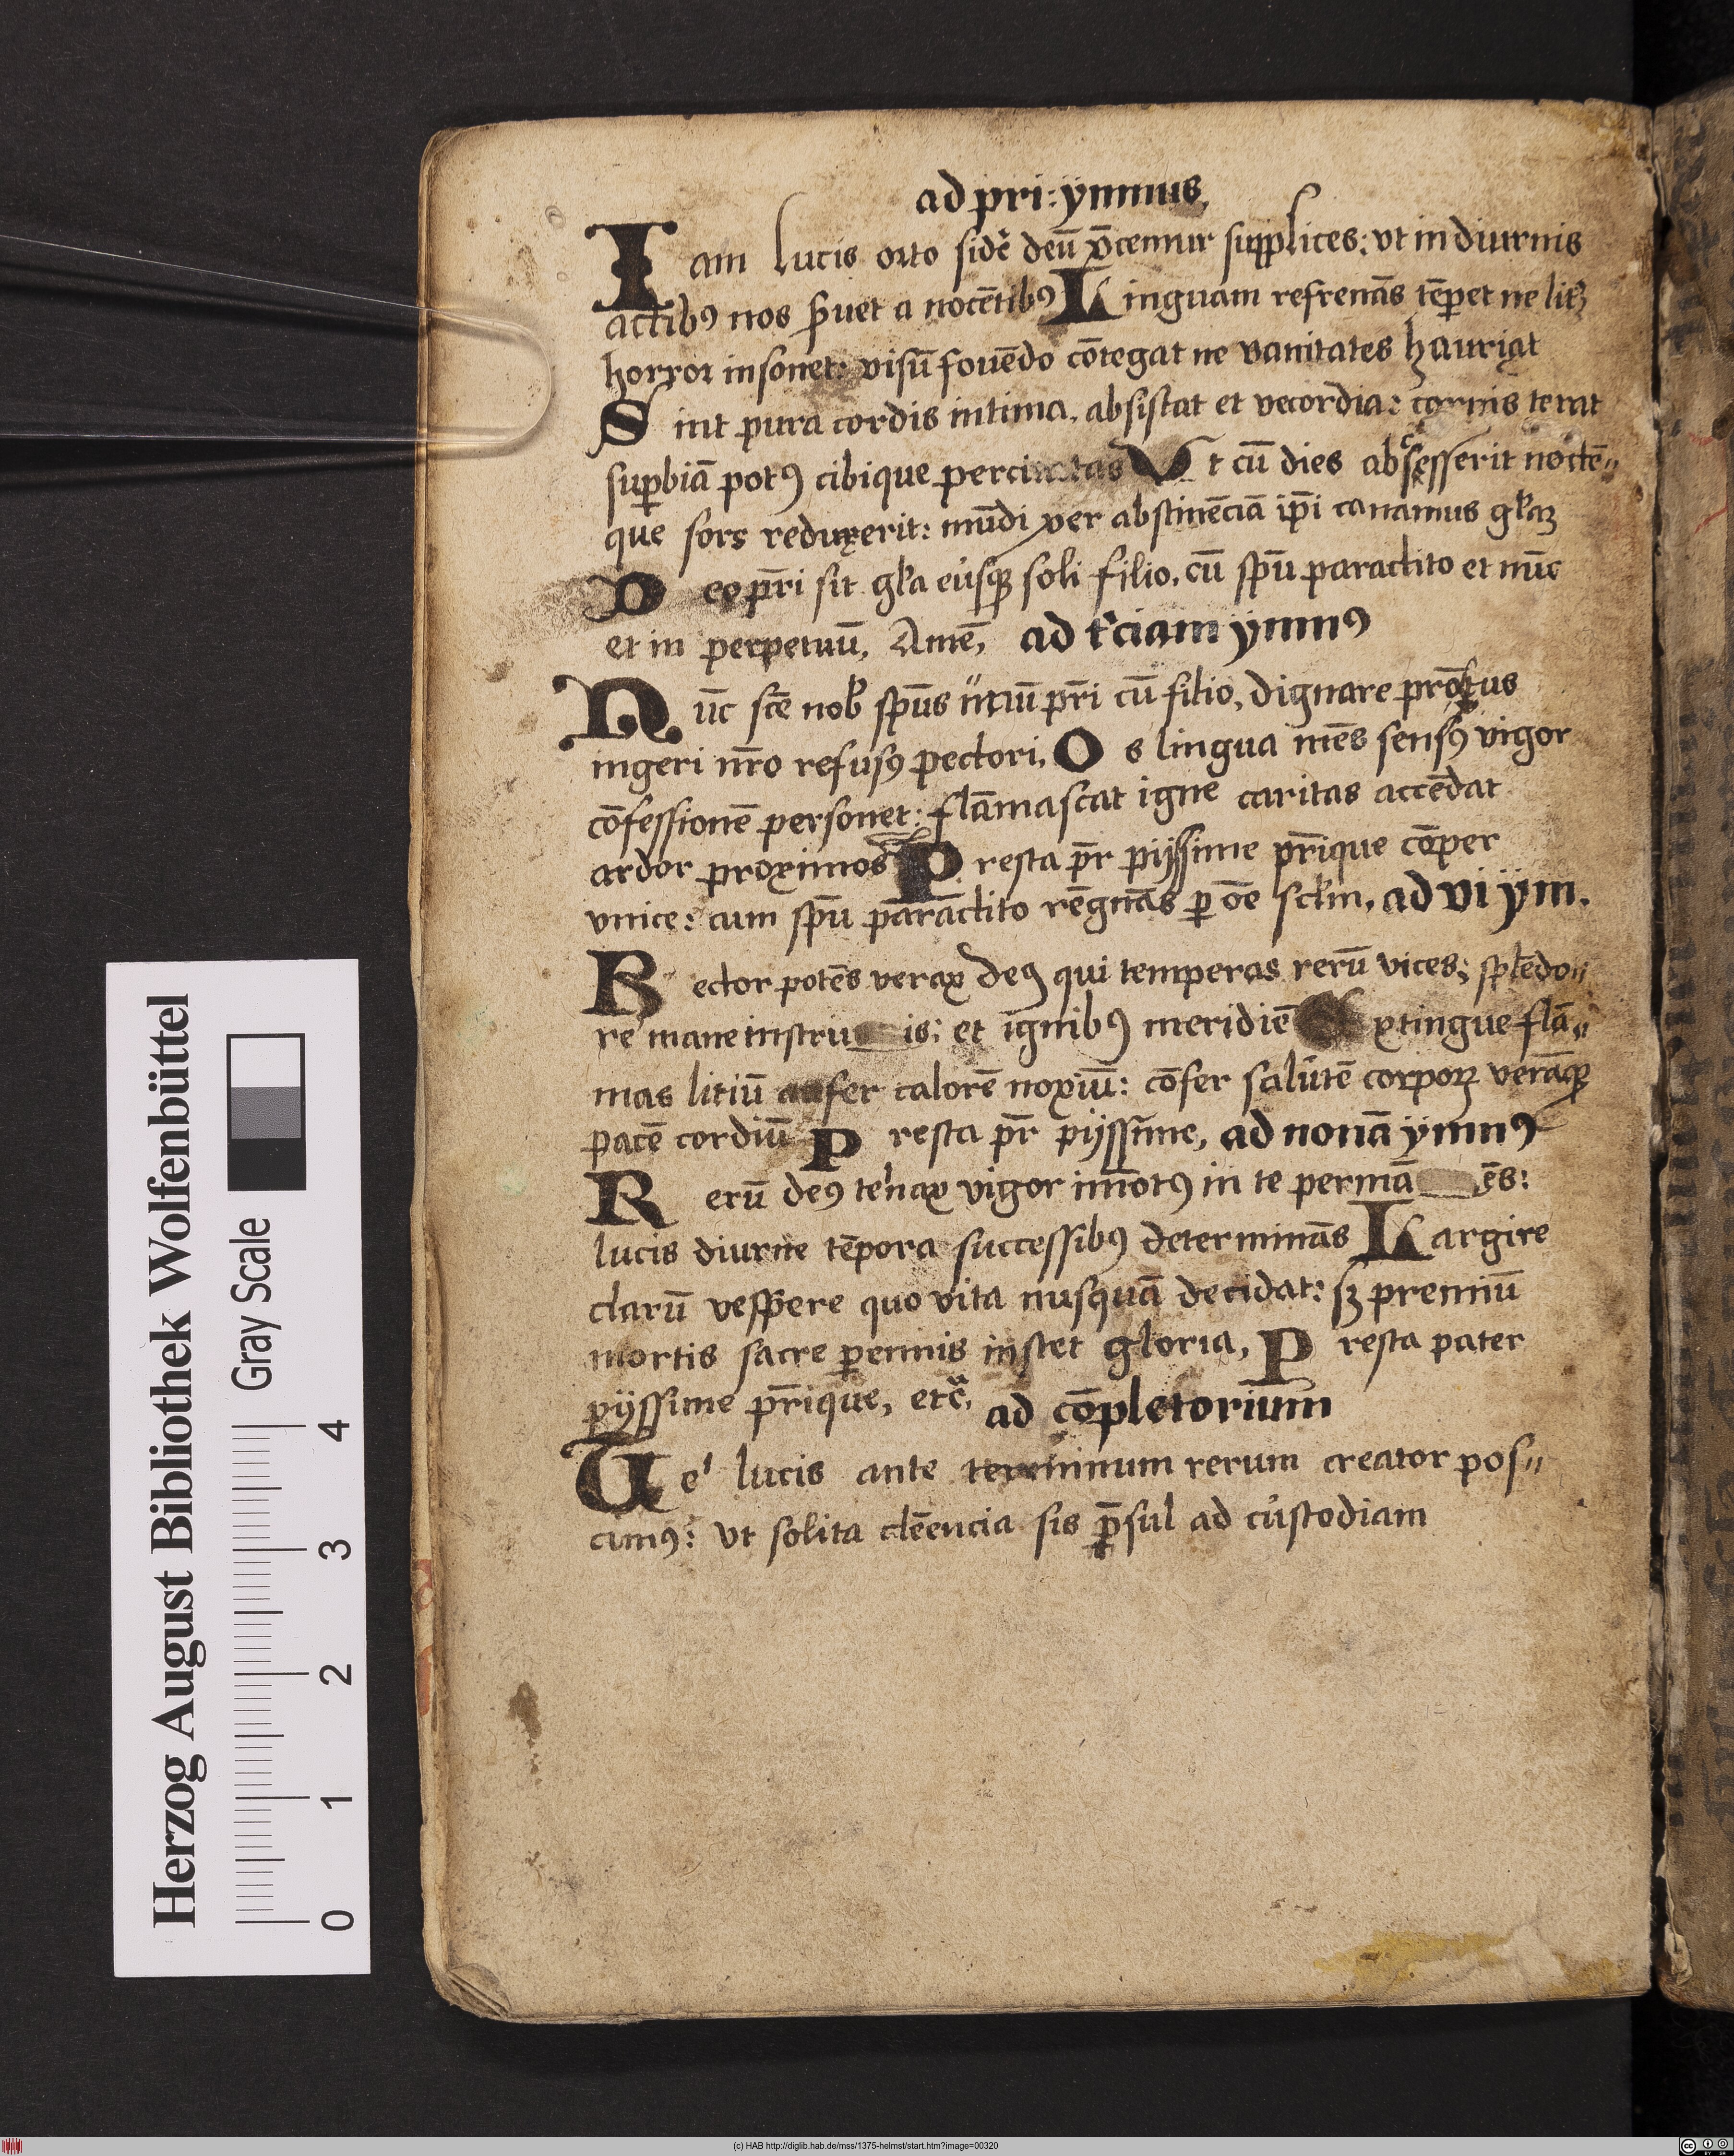 ad pri: ÿmnus,
Iam lucis orto sidē deū p̄cemur supplices: vt in diurnis
actibꝯ nos ẜuet a nocētibꝯ Linguam refrenās tēꝑet ne litꝫ
horror insonet: visū fouēdo cōtegat ne vanitates hauriat
Sint pura cordis intima, absistat et vecordia: carnis terat
suꝑbiā potꝯ cibique Vt cū dies absesserit noctē〃
que sors reduxerit: mūdi per abstinēciā ip̄i canamus gl̄aꝫ
Deo pr̄i sit gl̄a eiusqꝫ soli filio, cū spū paraclito et nūc
et in perpetuū, Amē, ad t'ciam ymnꝯ
Nūc scē nob̄ spūs vnū pr̄i cū filio, dignare
ingeri nr̄o refusꝯ pectori, Os lingua mēs sensꝯ vigor
cōfessionē personet: flāmascat igne caritas accēdat
ardor proximos Presta pr̄ pijssime pr̄ique cōper
vnice: cum spū paraclito rēgnās ꝑ oē scl̄m, ad vi ÿm.
Rector potēs verax deꝯ qui temperas rerū vices: splēdo〃
re mane instru is: et ignibꝯ meridiē xtingue flā〃
mas litiū aufer calorē noxiū: cōfer salutē corpoꝝ verāqꝫ
pacē cordiū Presta pr̄ pijssīme, ad nonā ymnꝯ
Rerū deꝯ tenax vigor īmotꝯ in te permā ēs:
lucis diurne tēpora successibꝯ determinās Largire
clarū vespere quo vita nusquā decidat: sꝫ premiū
mortis sacre ꝑennis instet gloria, Presta pater
pijssime pr̄ique, etc̄, ad cōpletorium
Te lucis ante terminum rerum creator pos〃
cimꝯ: vt solita clēencia sis p̄sul ad custodiam
Herzog August Bibliothek Wolfenbüttel
Gray Scale
0 1 2 3 4
(c) HAB http://diglib.hab.de/mss/1375-helmst/start.htm?image=00320